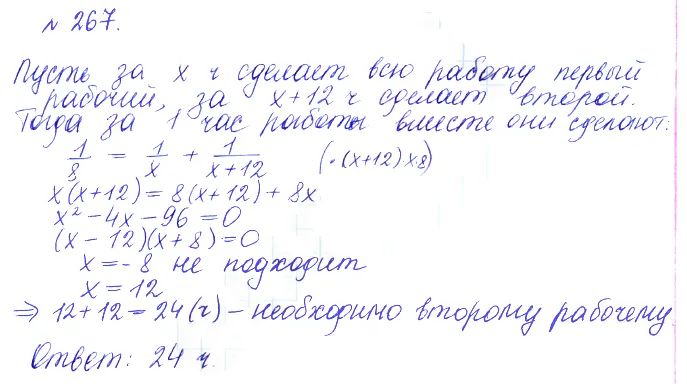 № 267.
Пусть за x ч сделает всю работу первый
рабочий, за x+12 ч сделает второй.
Тогда за 1 час работы вместе они сделают:
1/8 = 1/x + 1/(x+12) (·(x+12)x8)
x(x+12) = 8(x+12) + 8x
x² - 4x - 96 = 0
(x - 12)(x + 8) = 0
x = -8 не подходит
x = 12
⇒ 12 + 12 = 24 (ч) - необходимо второму рабочему
Ответ: 24 ч.